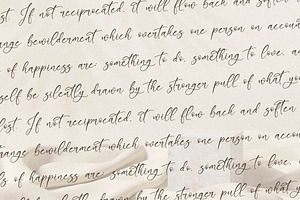 lost. If not reciprocated, it will flow back and soften
range bewilderment which overtakes one person on accoun
of happiness are: something to do, something to love, a
self be silently drawn by the stronger pull of what yo
lost. If not reciprocated, it will flow back and soften
range bewilderment which overtakes one person on acco
s of happiness are: something to do, something to love,
silently drawn by the stronger pull of what y